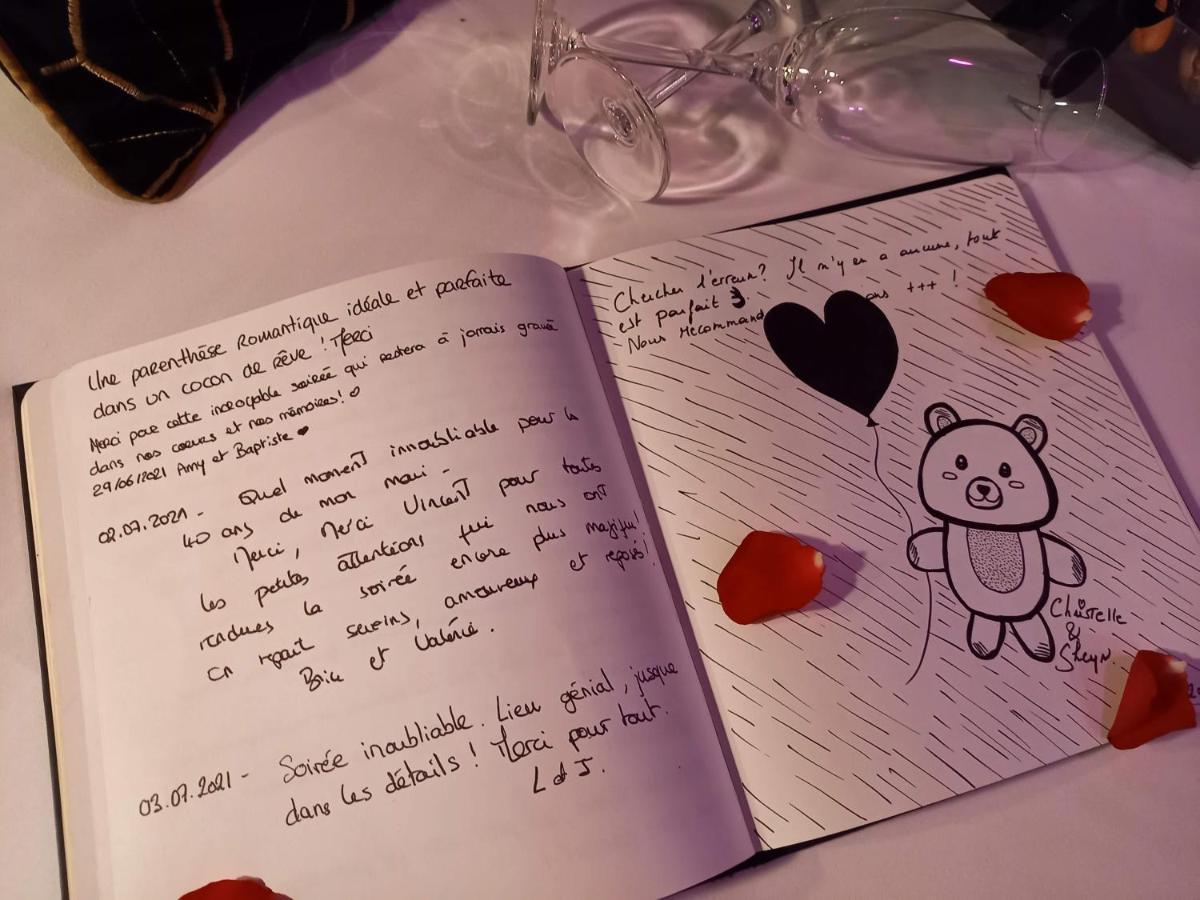 Une parenthèse Romantique idéale et parfaite
dans un cocon de rêve ! Merci
Merci pour cette incroyable soirée qui restera à jamais gravée
dans nos cœurs et nos mémoires !
29/06/2021 Amy et Baptiste ❤
02.07.2021 - Quel moment inoubliable pour les
40 ans de mon mari -
Merci, Merci Vincent pour toutes
les petites attentions qui nous ont
rendues la soirée encore plus magique!
on repart sereins, amoureux et reposés!
et Valérie.
03.07.2021 - Soirée inoubliable. Lieu génial, jusque
dans les détails ! Merci pour tout.
L & J.
Chercher l'erreur? Il n'y en a aucune, tout
est parfait
Nous recommand ons +++ !
Christelle
&